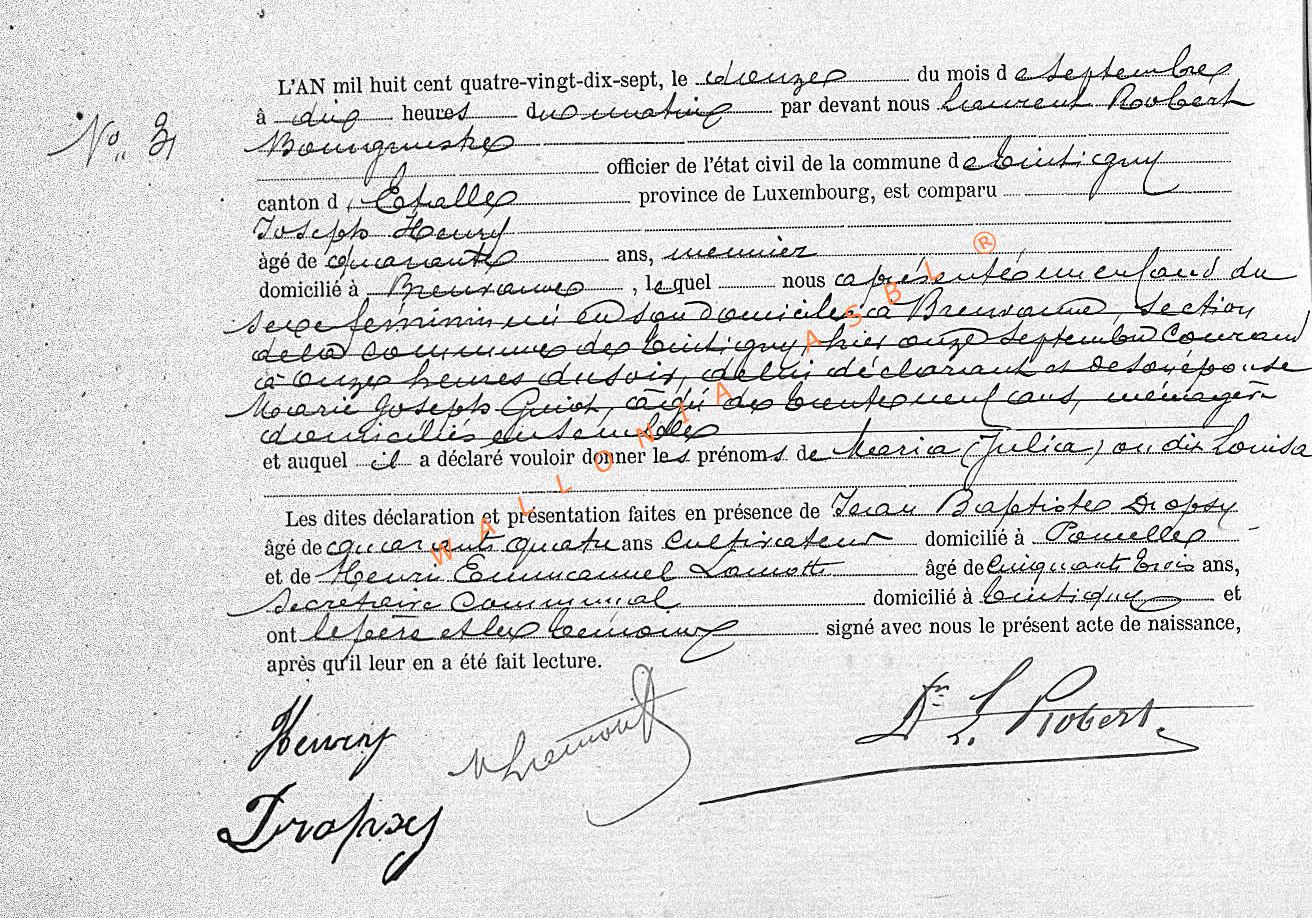 L'AN mil huit cent quatre-vingt-dix-sept, le douze du mois de septembre
à dix heures du matin par devant nous Laurent Robert
No 31
Bourgmestre
officier de l'état civil de la commune de Tintigny
canton d'Etalle province de Luxembourg, est comparu
Joseph Henry
âgé de quarante ans, meunier
domicilié à Breuvanne, lequel nous a présenté un enfant du
sexe féminin né en son domicile à Breuvanne, section
de la commune de Tintigny, hier onze septembre courant
à onze heures du soir, de lui déclarant et de son épouse
Marie Joseph Guiot, âgée de trente neuf ans, ménagère
domiciliés ensemble
et auquel il a déclaré vouloir donner les prénoms de Maria (Julia) ou dit Louisa
Les dites déclaration et présentation faites en présence de Jean Baptiste Dropsy
âgé de quarante quatre ans cultivateur domicilié à
et de Henri Emmanuel Lamotte âgé de cinquante trois ans,
secrétaire communal domicilié à Tintigny et
ont le père et les témoins signé avec nous le présent acte de naissance,
après qu'il leur en a été fait lecture.
Henry
Dr L. Robert.
Dropsy
WALLONIA ASBL ®